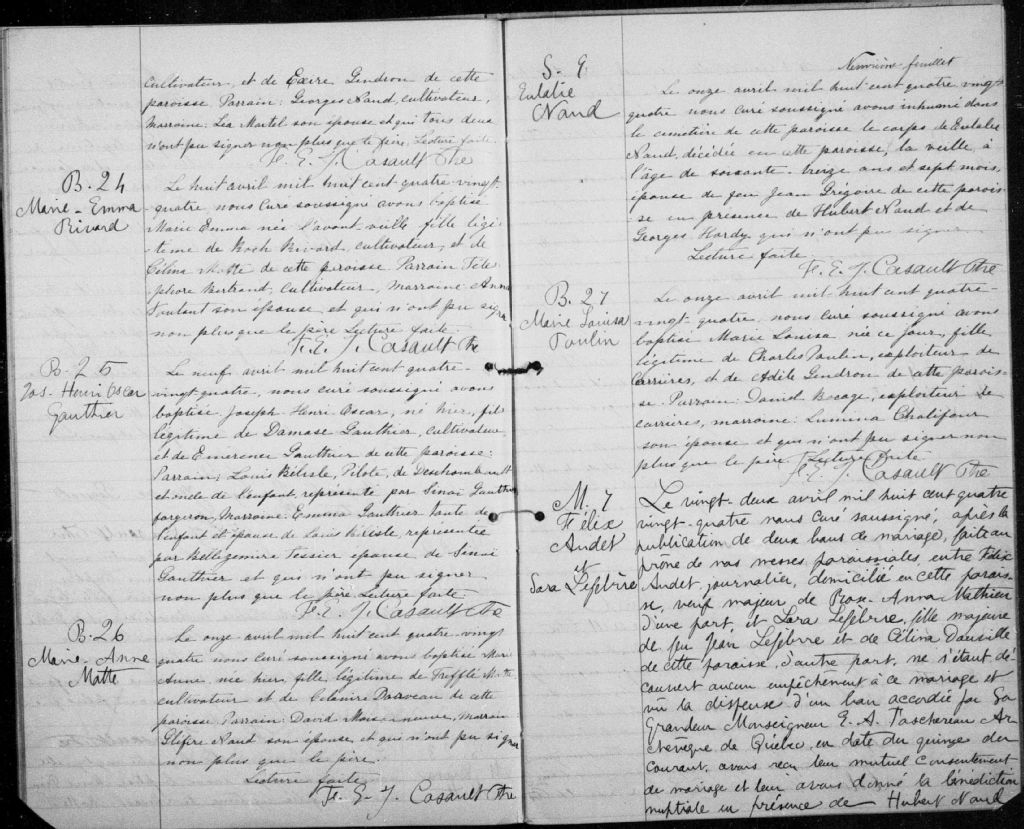 cultivateur, et de Exire Gendron de cette
paroisse. Parrain: Georges Naud, cultivateur,
Marraine: Léa Martel son épouse et qui tous deux
n'ont pu signer non plus que le père. Lecture faite.
F. E. J. Casault Ptre
B. 24
Marie-Emma
Rivard
Le huit avril mil huit cent quatre-vingt-
quatre nous curé soussigné avons baptisé
Marie Emma née l'avant veille fille légi-
time de Roch Rivard, cultivateur, et de
Célina Matte de cette paroisse Parrain Téles-
phore Bertrand, cultivateur, marraine Anna
Toutant son épouse et qui n'ont pu signer
non plus que le père Lecture faite.
F. E. J. Casault Ptre
B. 25
Jos-Henri Oscar
Gauthier
Le neuf avril mil huit cent quatre-
vingt quatre, nous curé soussigné avons
baptisé Joseph Henri Oscar, né hier, fils
légitime de Damase Gauthier, cultivateur
et de Emerence Gauthier de cette paroisse:
Parrain: Louis Bélisle, Pilote, de Deschambault
et oncle de l'enfant, représenté par Sinaï Gauthier
forgeron, Marraine: Emma Gauthier tante de
l'enfant et épouse de Louis Bélisle, représentée
par Tessier épouse de Sinaï
Gauthier et qui n'ont pu signer
non plus que le père Lecture faite.
F. E. J. Casault Ptre
B. 26
Marie-Anne
Matte
Le onze avril mil huit cent quatre-vingt
quatre nous curé soussigné avons baptisé Marie
Anne née hier, fille légitime de Trefflé Matte
cultivateur et de Darveau de cette
paroisse. Parrain: David Maisonneuve, marraine
Naud son épouse, et qui n'ont pu signer
non plus que le père.
Lecture faite
F. E. J. Casault Ptre
Neuvième feuillet
S. 9
Eulalie
Naud
Le onze avril mil huit cent quatre vingt
quatre nous curé soussigné avons inhumé dans
le cimetière de cette paroisse le corps de Eulalie
Naud, décédée en cette paroisse, la veille à
l'âge de soixante-treize ans et sept mois,
épouse de feu Jean Grégoire de cette parois-
se en présence de Hubert Naud et de
Georges Hardy qui n'ont pu signer
Lecture faite.
F. E. J. Casault Ptre
B. 27
Marie Louisa
Paulin
Le onze avril mil huit cent quatre-
vingt-quatre, nous curé soussigné avons
baptisé Marie Louisa née ce jour, fille
légitime de Charles Paulin, exploiteur de
carrières, et de Adèle Gendron de cette parois-
se. Parrain: David Bocage, exploiteur de
carrières, marraine: Lumina Chalifour
son épouse et qui n'ont pu signer non
plus que le père. Lecture faite
F. E. J. Casault Ptre
M. 7
Félix
Audet
et
Sara Lefebvre
Le vingt-deux avril mil huit cent quatre
vingt-quatre nous Curé soussigné, après la
publication de deux bans de mariage, faite au
prône de nos messes paroissiales, entre Félix
Audet, journalier, domicilié en cette parois-
se, veuf majeur de Rose-Anna Mathieu
d'une part et Sara Lefebvre, fille majeure
de feu Jean Lefebvre et de Célina
de cette paroisse, d'autre part, ne s'étant dé-
couvert aucun empêchement à ce mariage et
vu la dispense d'un ban accordée par Sa
Grandeur Monseigneur E. A. Taschereau Ar-
chevêque de Québec, en date du quinze du
courant, avons reçu leur mutuel consentement
de mariage et leur avons donné la bénédiction
nuptiale en présence de Hubert Naud